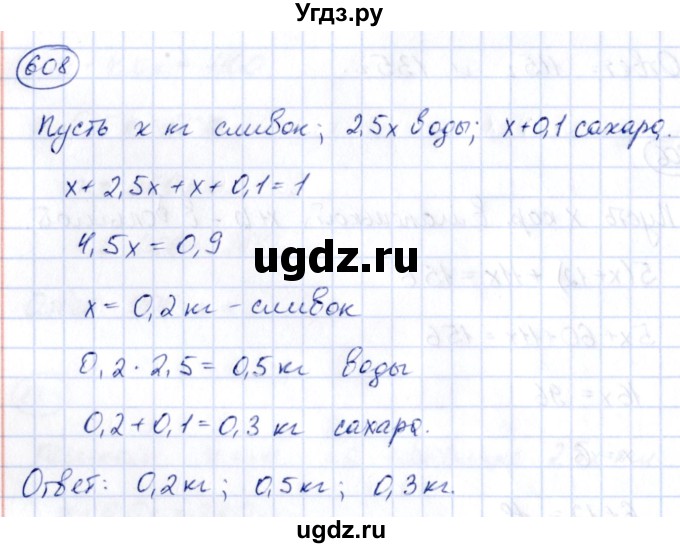 Угдз.ру
608
Пусть x кг сливок; 2,5x воды; x+0,1 сахара.
x + 2,5x + x + 0,1 = 1
4,5x = 0,9
ugdz.ru
x = 0,2 кг – сливок
0,2 · 2,5 = 0,5 кг воды
0,2 + 0,1 = 0,3 кг сахара.
Ответ: 0,2 кг; 0,5 кг; 0,3 кг.
ugdz.ru